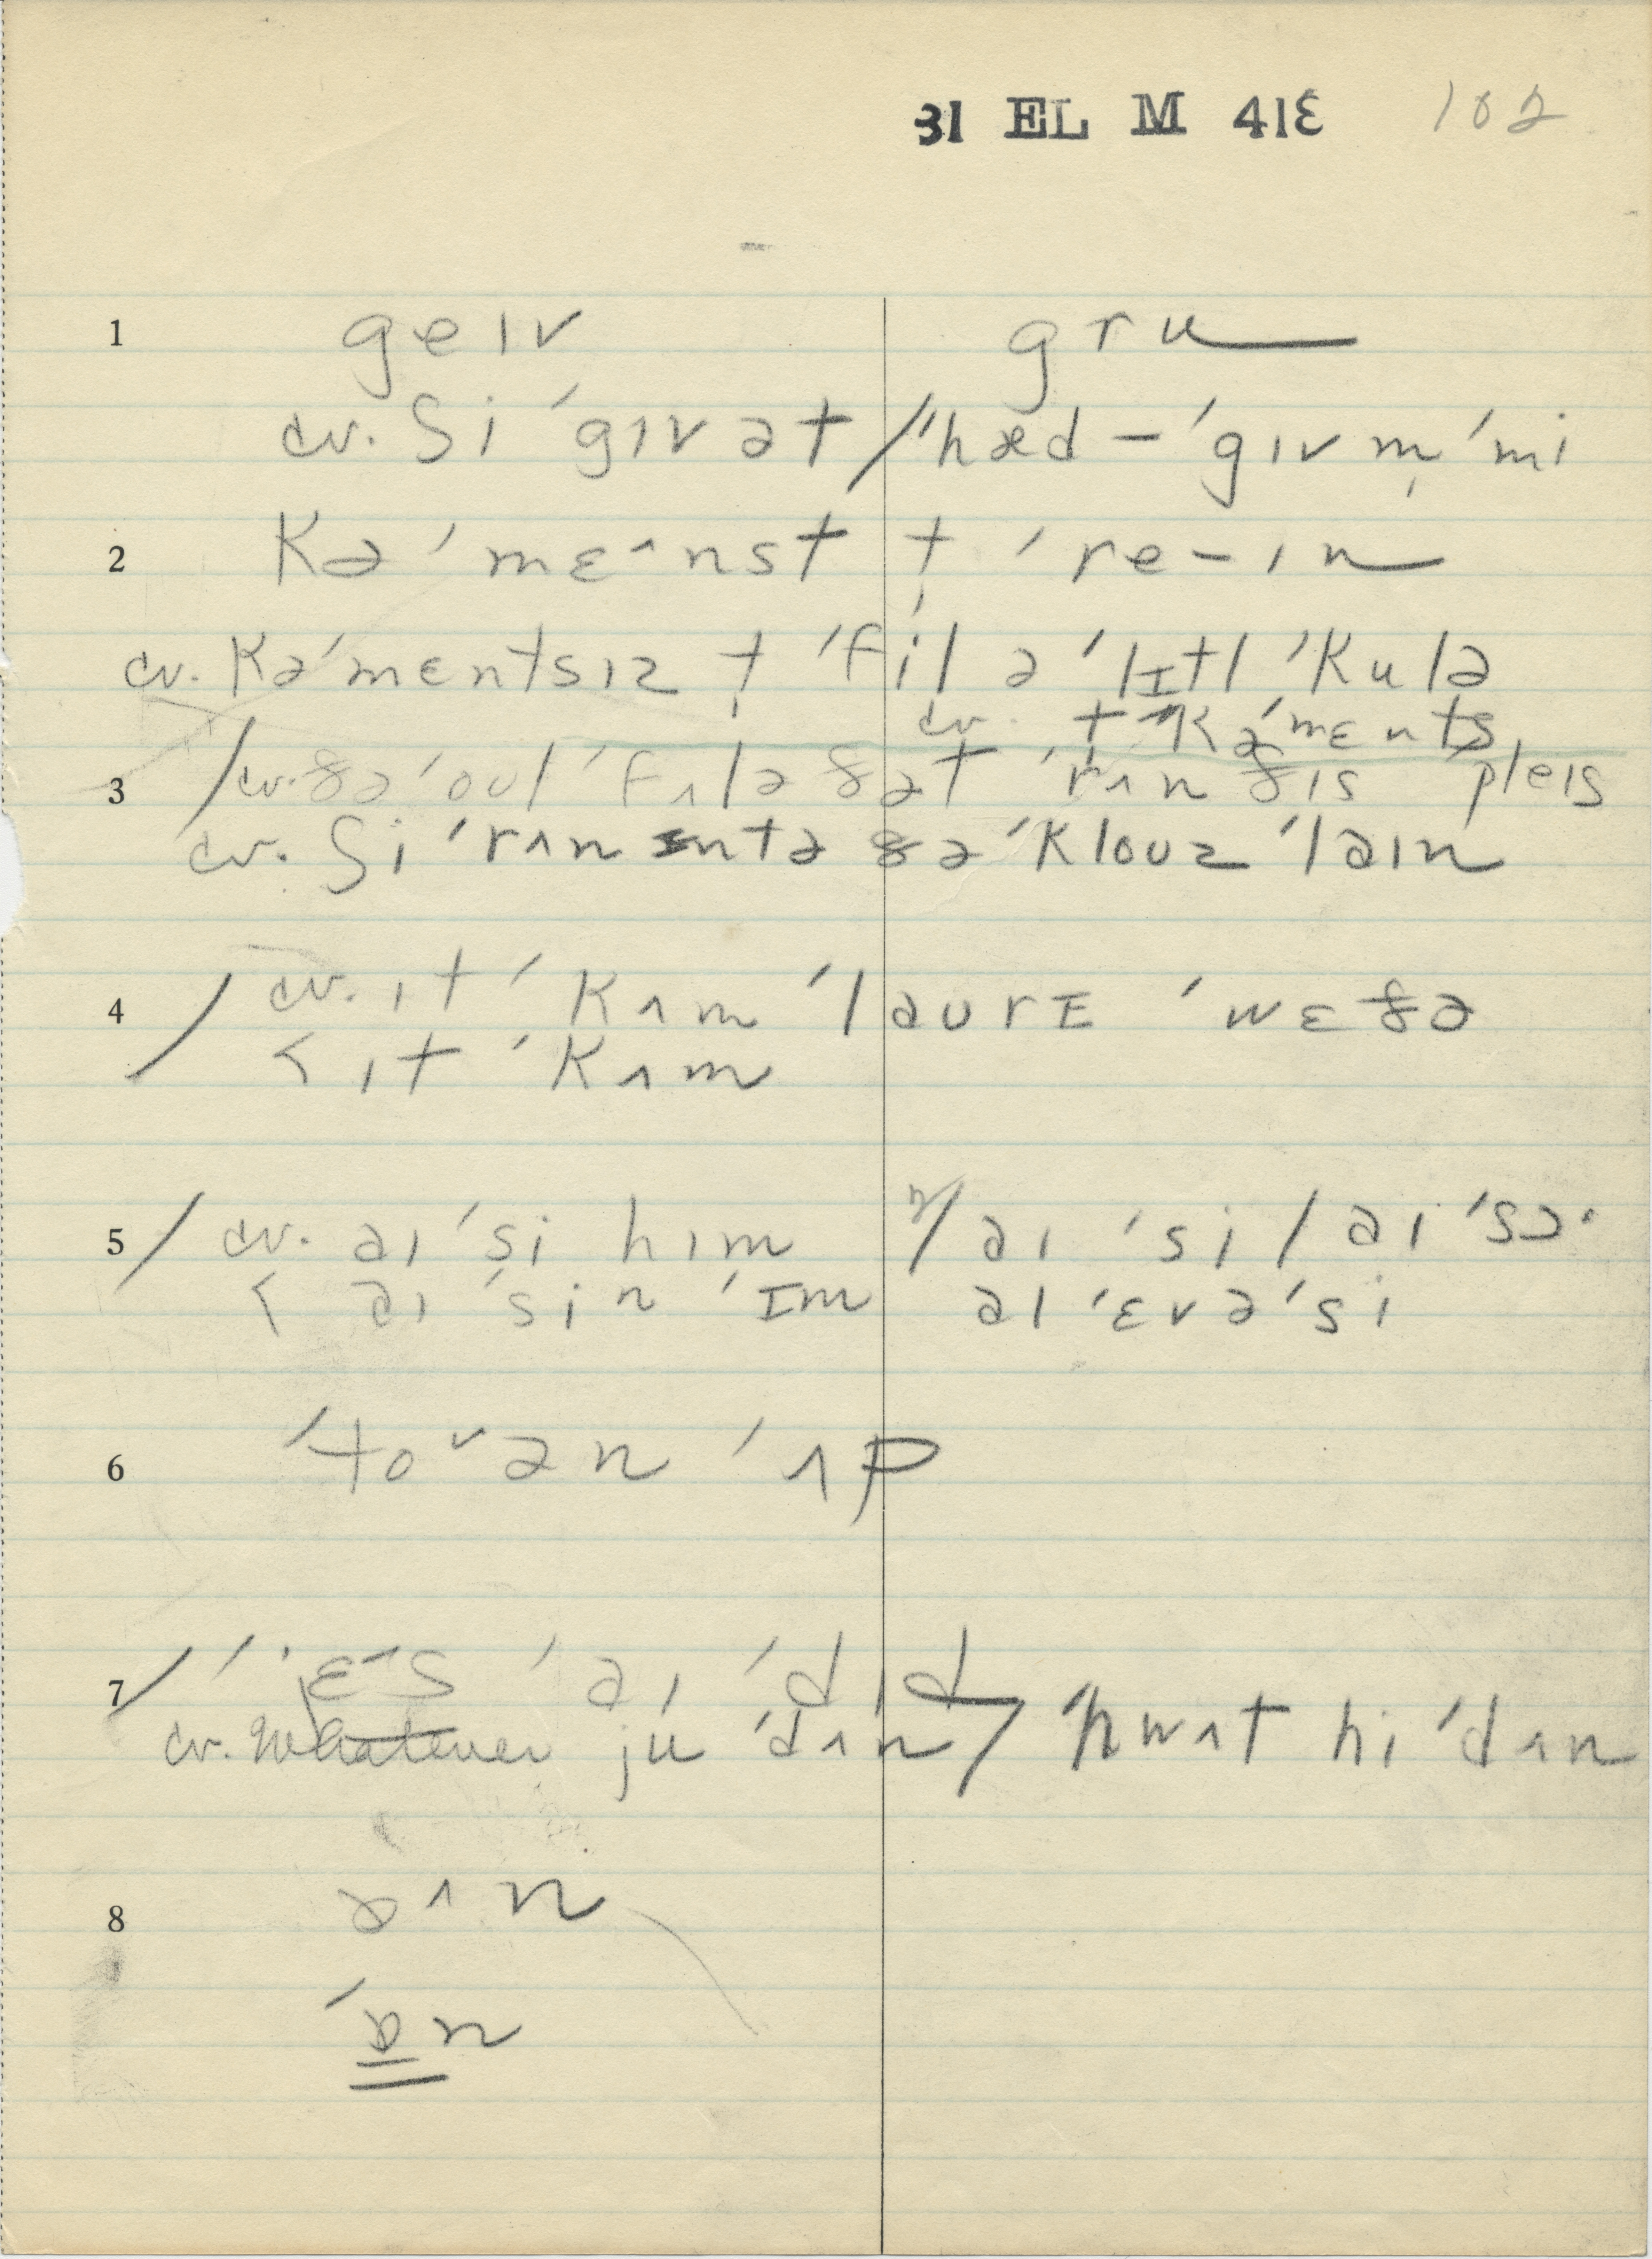 31 EL M 41ε 102
1 geɪv gru
cv. ʃi ˈgɪv ət / ˈhæd – ˈgɪv m̩ ˈmi
2 kə ˈmɛ^nst t̩ ˈre-ɪn
cv. kəˈmentsɪz t̩ ˈfil ə ˈlɪtl ˈkulə
cv. t ˈkəˈmɛnts
3 / cv. ðə ˈoʊl ˈfɛlə ðət ˈrʌn ðɪs pleɪs
cv. ʃi ˈrʌn ɪntə ðə ˈkloʊz ˈlaɪn
4 / cv. ɪt ˈkʌm ˈlaʊrɪ ˈwɛðə
< ɪt ˈkʌm
5 / cv. aɪ ˈsi hɪm / aɪ ˈsi / aɪ ˈsɔ·
< aɪ ˈsin ˈɪm aɪ ˈɛvə ˈsi
6 ˈto˅ən ˈʌp
7 / ˈjɛ^s ˈaɪ ˈdɪd
cv. Whatever ju ˈdʌn / ˈhwʌt hi ˈdʌn
8 ɒ^n
ˈɒn